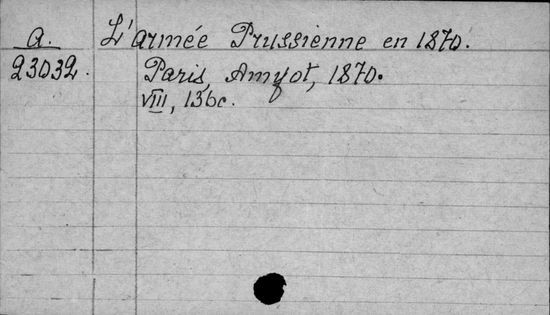 a. L'armée Prussienne en 1870.
23032. Paris, Amyot, 1870.
VIII, 136c.